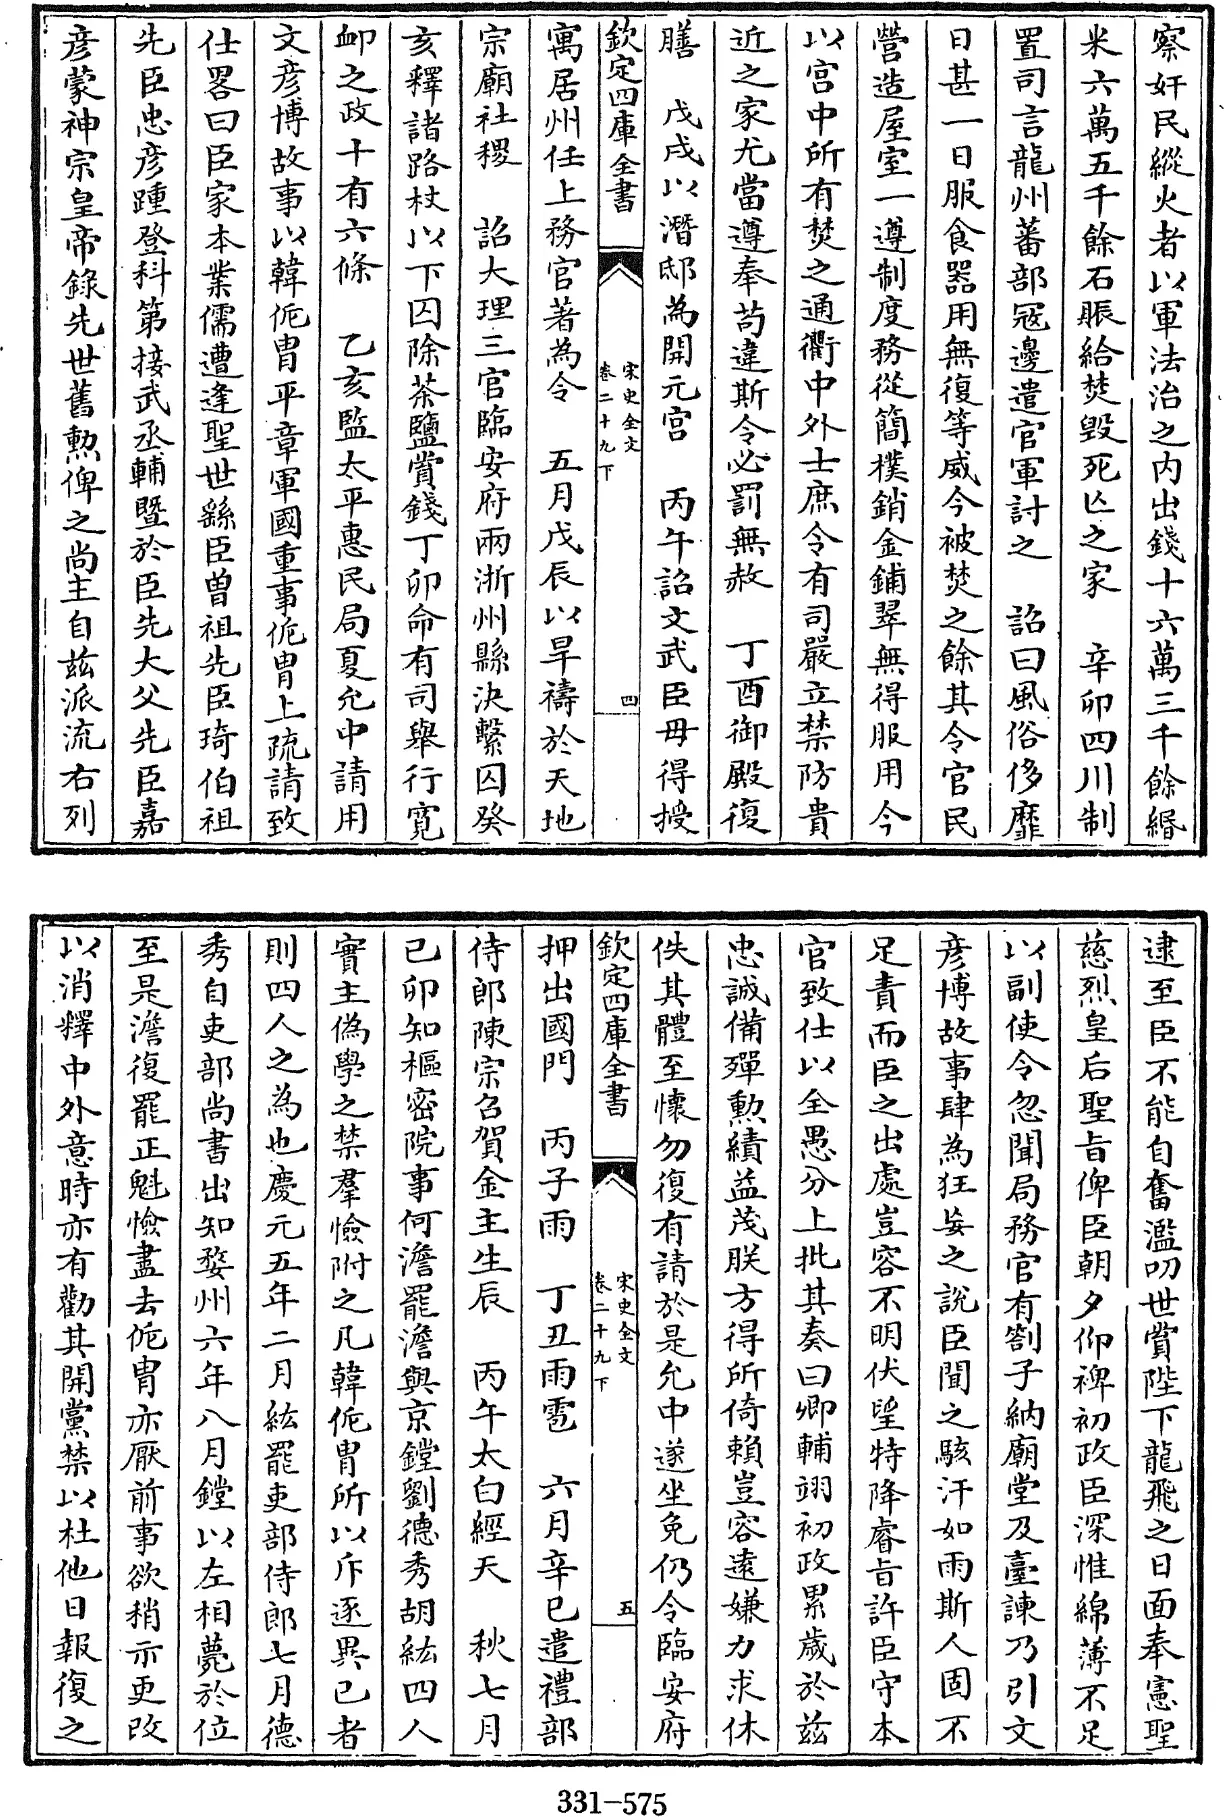 察奸民縱火者以軍法治之内出錢十六萬三千餘緡
米六萬五千餘石賑給焚毀死亾之家　辛卯四川制
置司言龍州蕃部冦邊遣官軍討之　詔曰風俗侈靡
日甚一日服食器用無復等威今被焚之餘其令官民
營造屋室一遵制度務從簡樸銷金鋪翠無得服用今
以宫中所有焚之通衢中外士庶令有司嚴立禁防貴
近之家尤當遵奉茍違斯令必罰無赦　丁酉御殿復
膳　戊戌以潛邸為開元宫　丙午詔文武臣毋得授
欽定四庫全書
宋史全文
卷二十九下
四
寓居州任上務官著為令　五月戊辰以旱禱於天地
宗廟社稷　詔大理三官臨安府兩浙州縣決繫囚癸
亥釋諸路杖以下囚除茶鹽賞錢丁卯命有司舉行寛
卹之政十有六條　乙亥監太平惠民局夏允中請用
文彦博故事以韓侂胄平章軍國重事侂胄上疏請致
仕畧曰臣家本業儒遭逢聖世繇臣曾祖先臣琦伯祖
先臣忠彦踵登科第接武丞輔暨於臣先大父先臣嘉
彦蒙神宗皇帝錄先世舊勲俾之尚主自兹派流右列
逮至臣不能自奮濫叨世賞陛下龍飛之日面奉憲聖
慈烈皇后聖旨俾臣朝夕仰裨初政臣深惟綿薄不足
以副使令忽聞局務官有劄子納廟堂及臺諫乃引文
彦博故事肆為狂妄之說臣聞之駭汗如雨斯人固不
足責而臣之出處豈容不明伏望特降睿旨許臣守本
官致仕以全愚分上批其奏曰卿輔翊初政累歲於兹
忠誠備殫勲績益茂朕方得所倚賴豈容遠嫌力求休
佚其體至懷勿復有請於是允中遂坐免仍令臨安府
欽定四庫全書
宋史全文
卷二十九下
五
押出國門　丙子雨　丁丑雨雹　六月辛巳遣禮部
侍郎陳宗召賀金主生辰　丙午太白經天　秋七月
已卯知樞密院事何澹罷澹與京鏜劉德秀胡紘四人
實主偽學之禁羣憸附之凡韓侂胄所以斥逐異已者
則四人之為也慶元五年二月紘罷吏部侍郎七月德
秀自吏部尚書出知婺州六年八月鏜以左相薨於位
至是澹復罷正魁憸盡去侂胄亦厭前事欲稍示更改
以消釋中外意時亦有勸其開黨禁以杜他日報復之
331-575